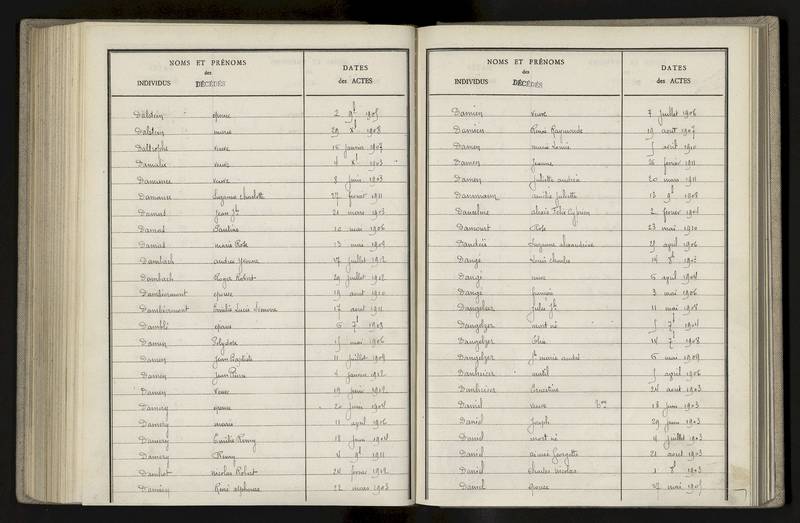 NOMS ET PRÉNOMS
des
INDIVIDUS DÉCÉDÉS
DATES
des ACTES
Dalstein épouse 2 9b 1905
Dalstein marie 29 Xb 1908
veuve 15 janvier 1907
Damalix veuve 4 Xb 1903
veuve 8 juin 1903
Damance Suzanne charlotte 27 février 1911
Damas Jean Bte 21 mars 1903
Damas Pauline 10 mai 1906
Damas marie Rose 13 mai 1909
Dambach andrée Yvonne 17 juillet 1912
Dambach Roger Robert 29 juillet 1912
Damblemont épouse 19 août 1910
Damblemont Emilie Lucie Simone 17 août 1911
Damblé épouse 6 7b 1903
Damen Polydore 15 mai 1906
Damen Jean Baptiste 11 juillet 1909
Damen Jean Pierre 4 janvier 1912
Damen veuve 19 juin 1912
Damery épouse 20 juin 1904
Damery marie 11 april 1906
Damery Emilie Rémy 18 juin 1904
Damery Rémy 4 9b 1911
nicolas Robert 24 février 1912
Damien René alphonse 22 mars 1903
NOMS ET PRÉNOMS
des
INDIVIDUS DÉCÉDÉS
DATES
des ACTES
Damien veuve 7 juillet 1906
Damien Renée Raymonde 19 août 1907
Damen marie Louise 5 avril 1910
Damen Jeanne 26 février 1911
Damen Juliette andrée 20 mars 1911
Dammann amélie Juliette 13 9b 1908
Danselme alexis Félix Cyprien 2 février 1901
Damourt Rose 23 mai 1910
Dandrée Suzanne alexandrine 29 april 1906
Dangé Louis charles 14 8b 1903
Dangé veuve 5 april 1904
Dangé françois 3 mai 1906
Dangelzer Julie Jte 11 mai 1908
Dangelzer mort né 5 7b 1904
Dangelzer Elise 14 7b 1908
Dangelzer Jh marie andré 6 mai 1909
Danheiser 5 april 1906
Danheiser Ernestine 24 août 1903
Daniel veuve 18 juin 1903
Daniel Joseph 29 juin 1903
Daniel mort né 4 juillet 1903
Daniel aimée Georgette 21 août 1903
Daniel charles nicolas 1 8b 1903
Daniel épouse 27 mai 1905